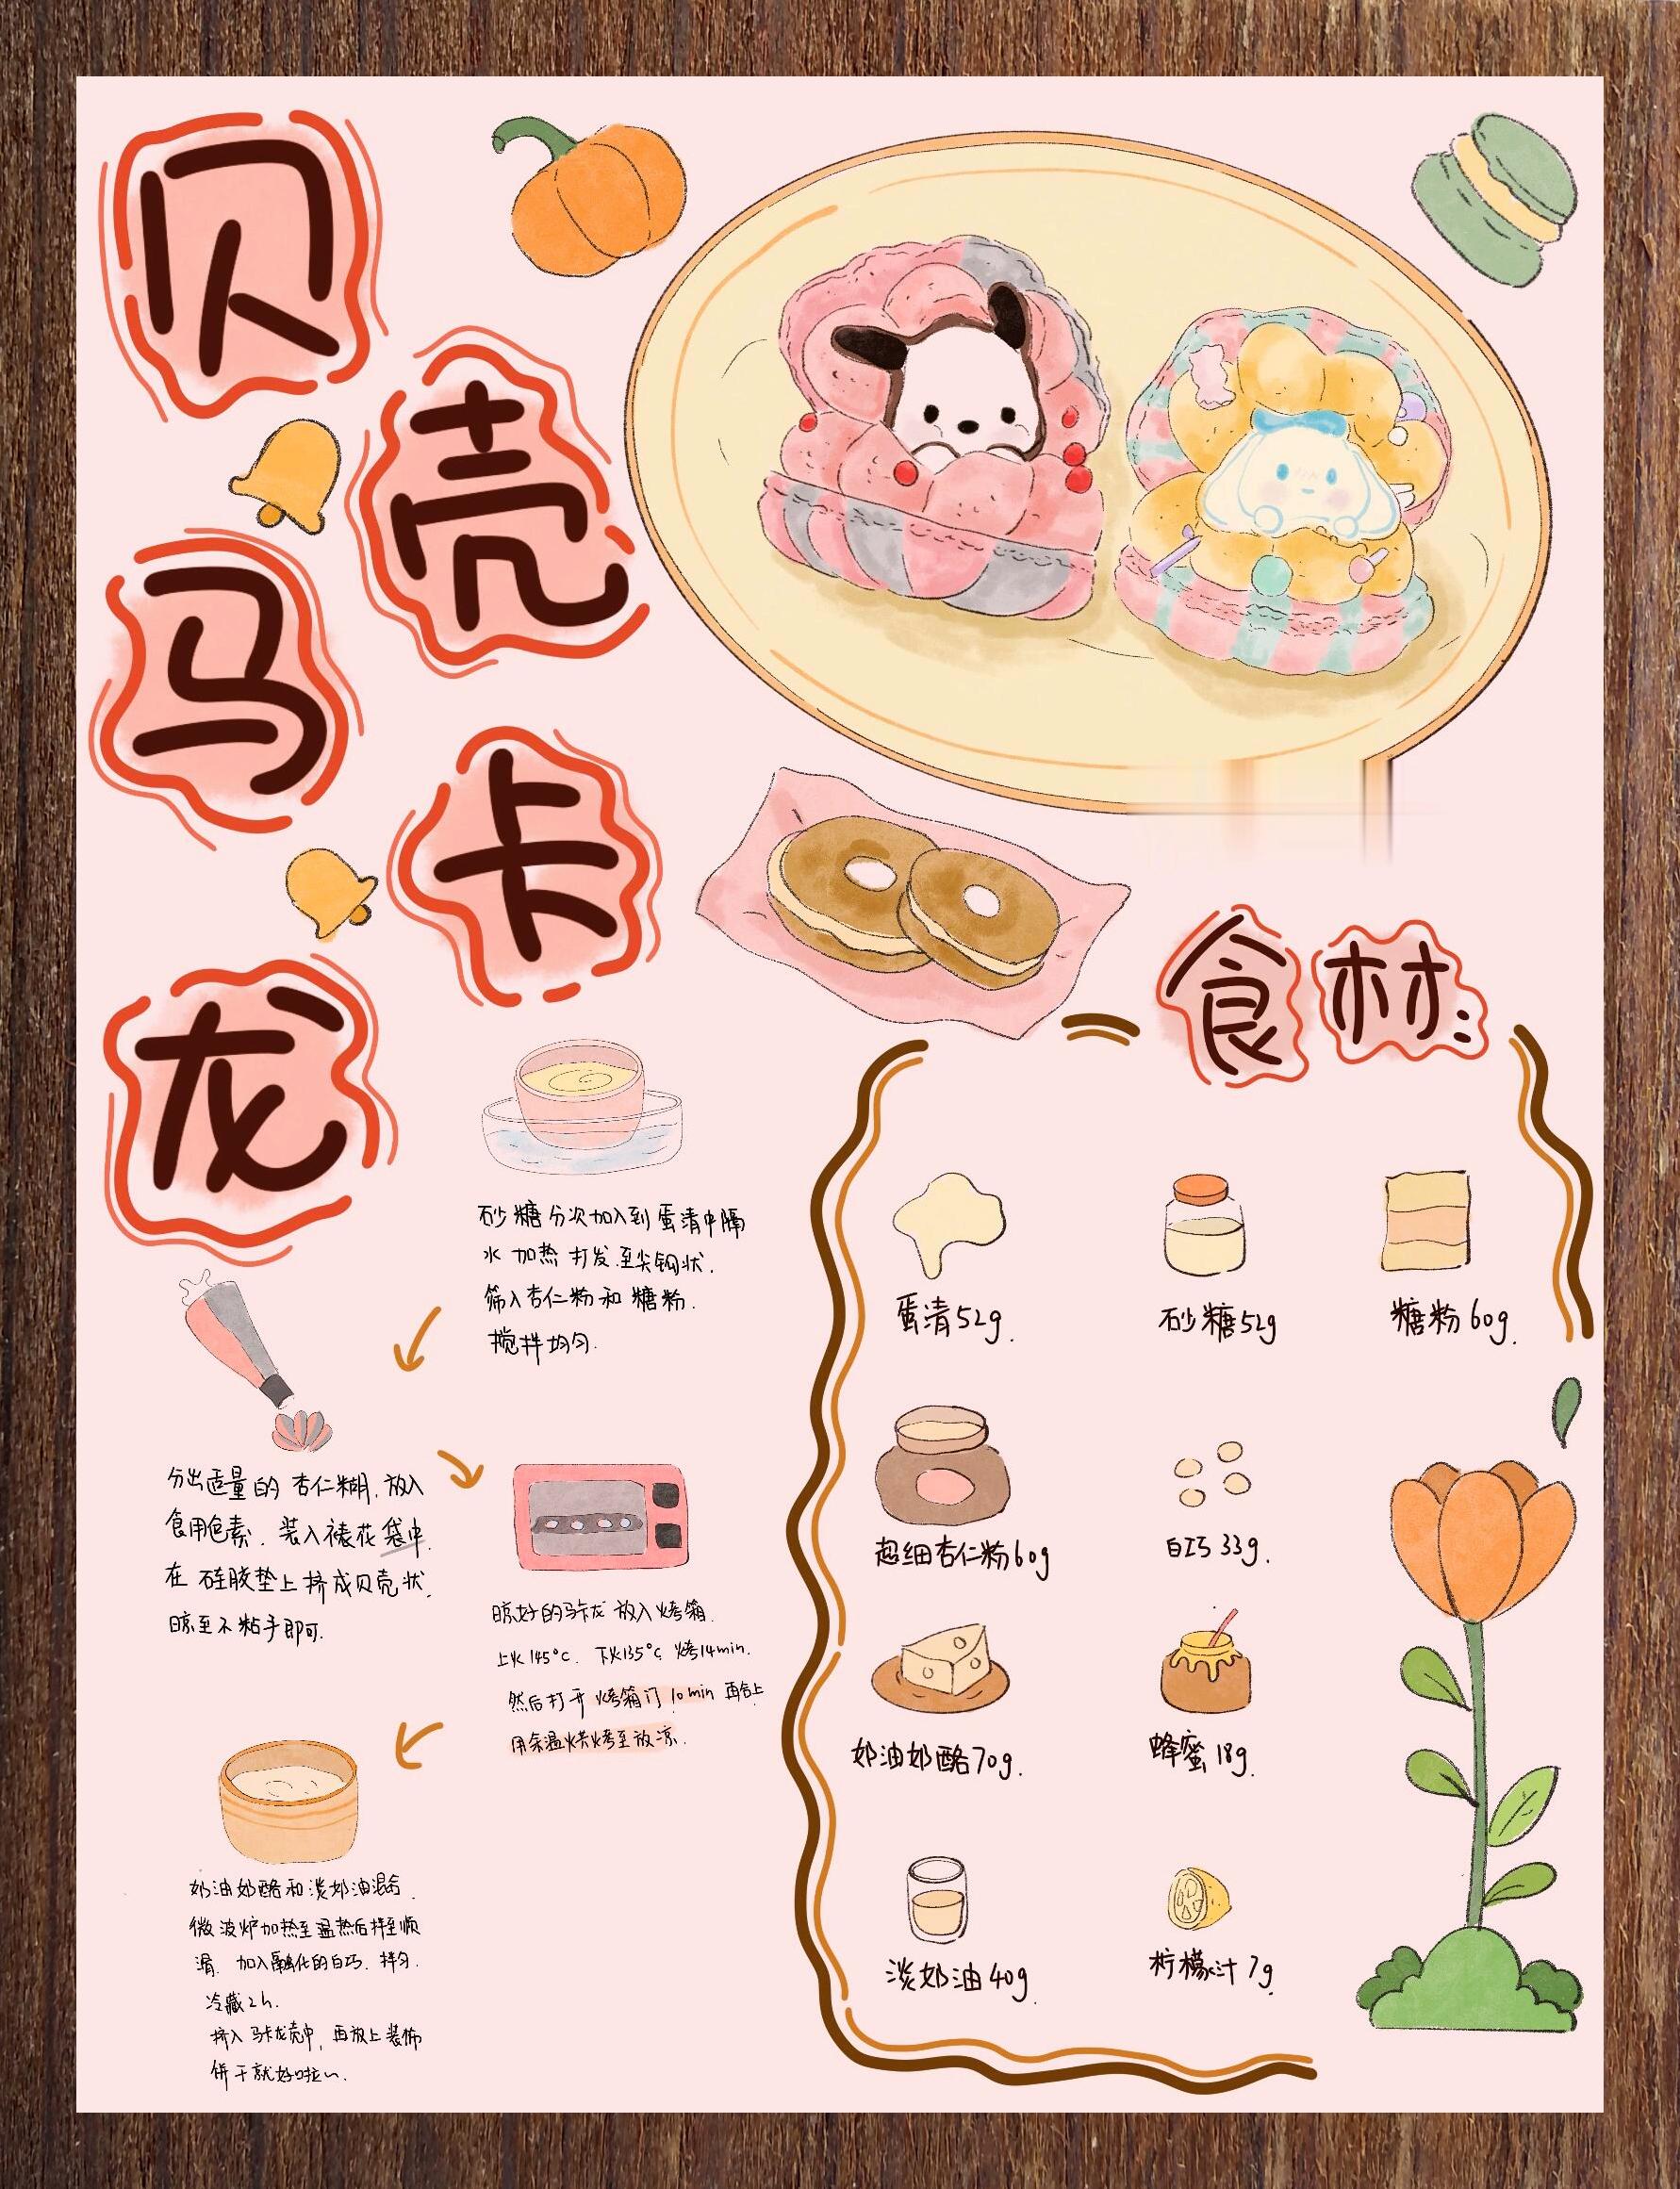 贝壳马卡龙
砂糖分次加入到蛋清中隔
水加热打发至尖钩状.
筛入杏仁粉和糖粉.
搅拌均匀.
分出适量的杏仁糊,放入
食用色素.装入裱花袋中.
在硅胶垫上挤成贝壳状.
晾至不粘手即可.
晾好的马卡龙放入烤箱.
上火145°C.下火135°C,烤14min.
然后打开烤箱门10min再合上
用余温烘烤至放凉.
奶油奶酪和淡奶油混合.
微波炉加热至温热后拌至顺
滑.加入融化的白巧.拌匀.
冷藏2h.
挤入马卡龙壳中,再放上装饰
饼干就好啦~.
食材:
蛋清52g.
砂糖52g
糖粉60g.
超细杏仁粉60g
白巧33g.
奶油奶酪70g.
蜂蜜18g.
淡奶油40g.
柠檬汁7g.